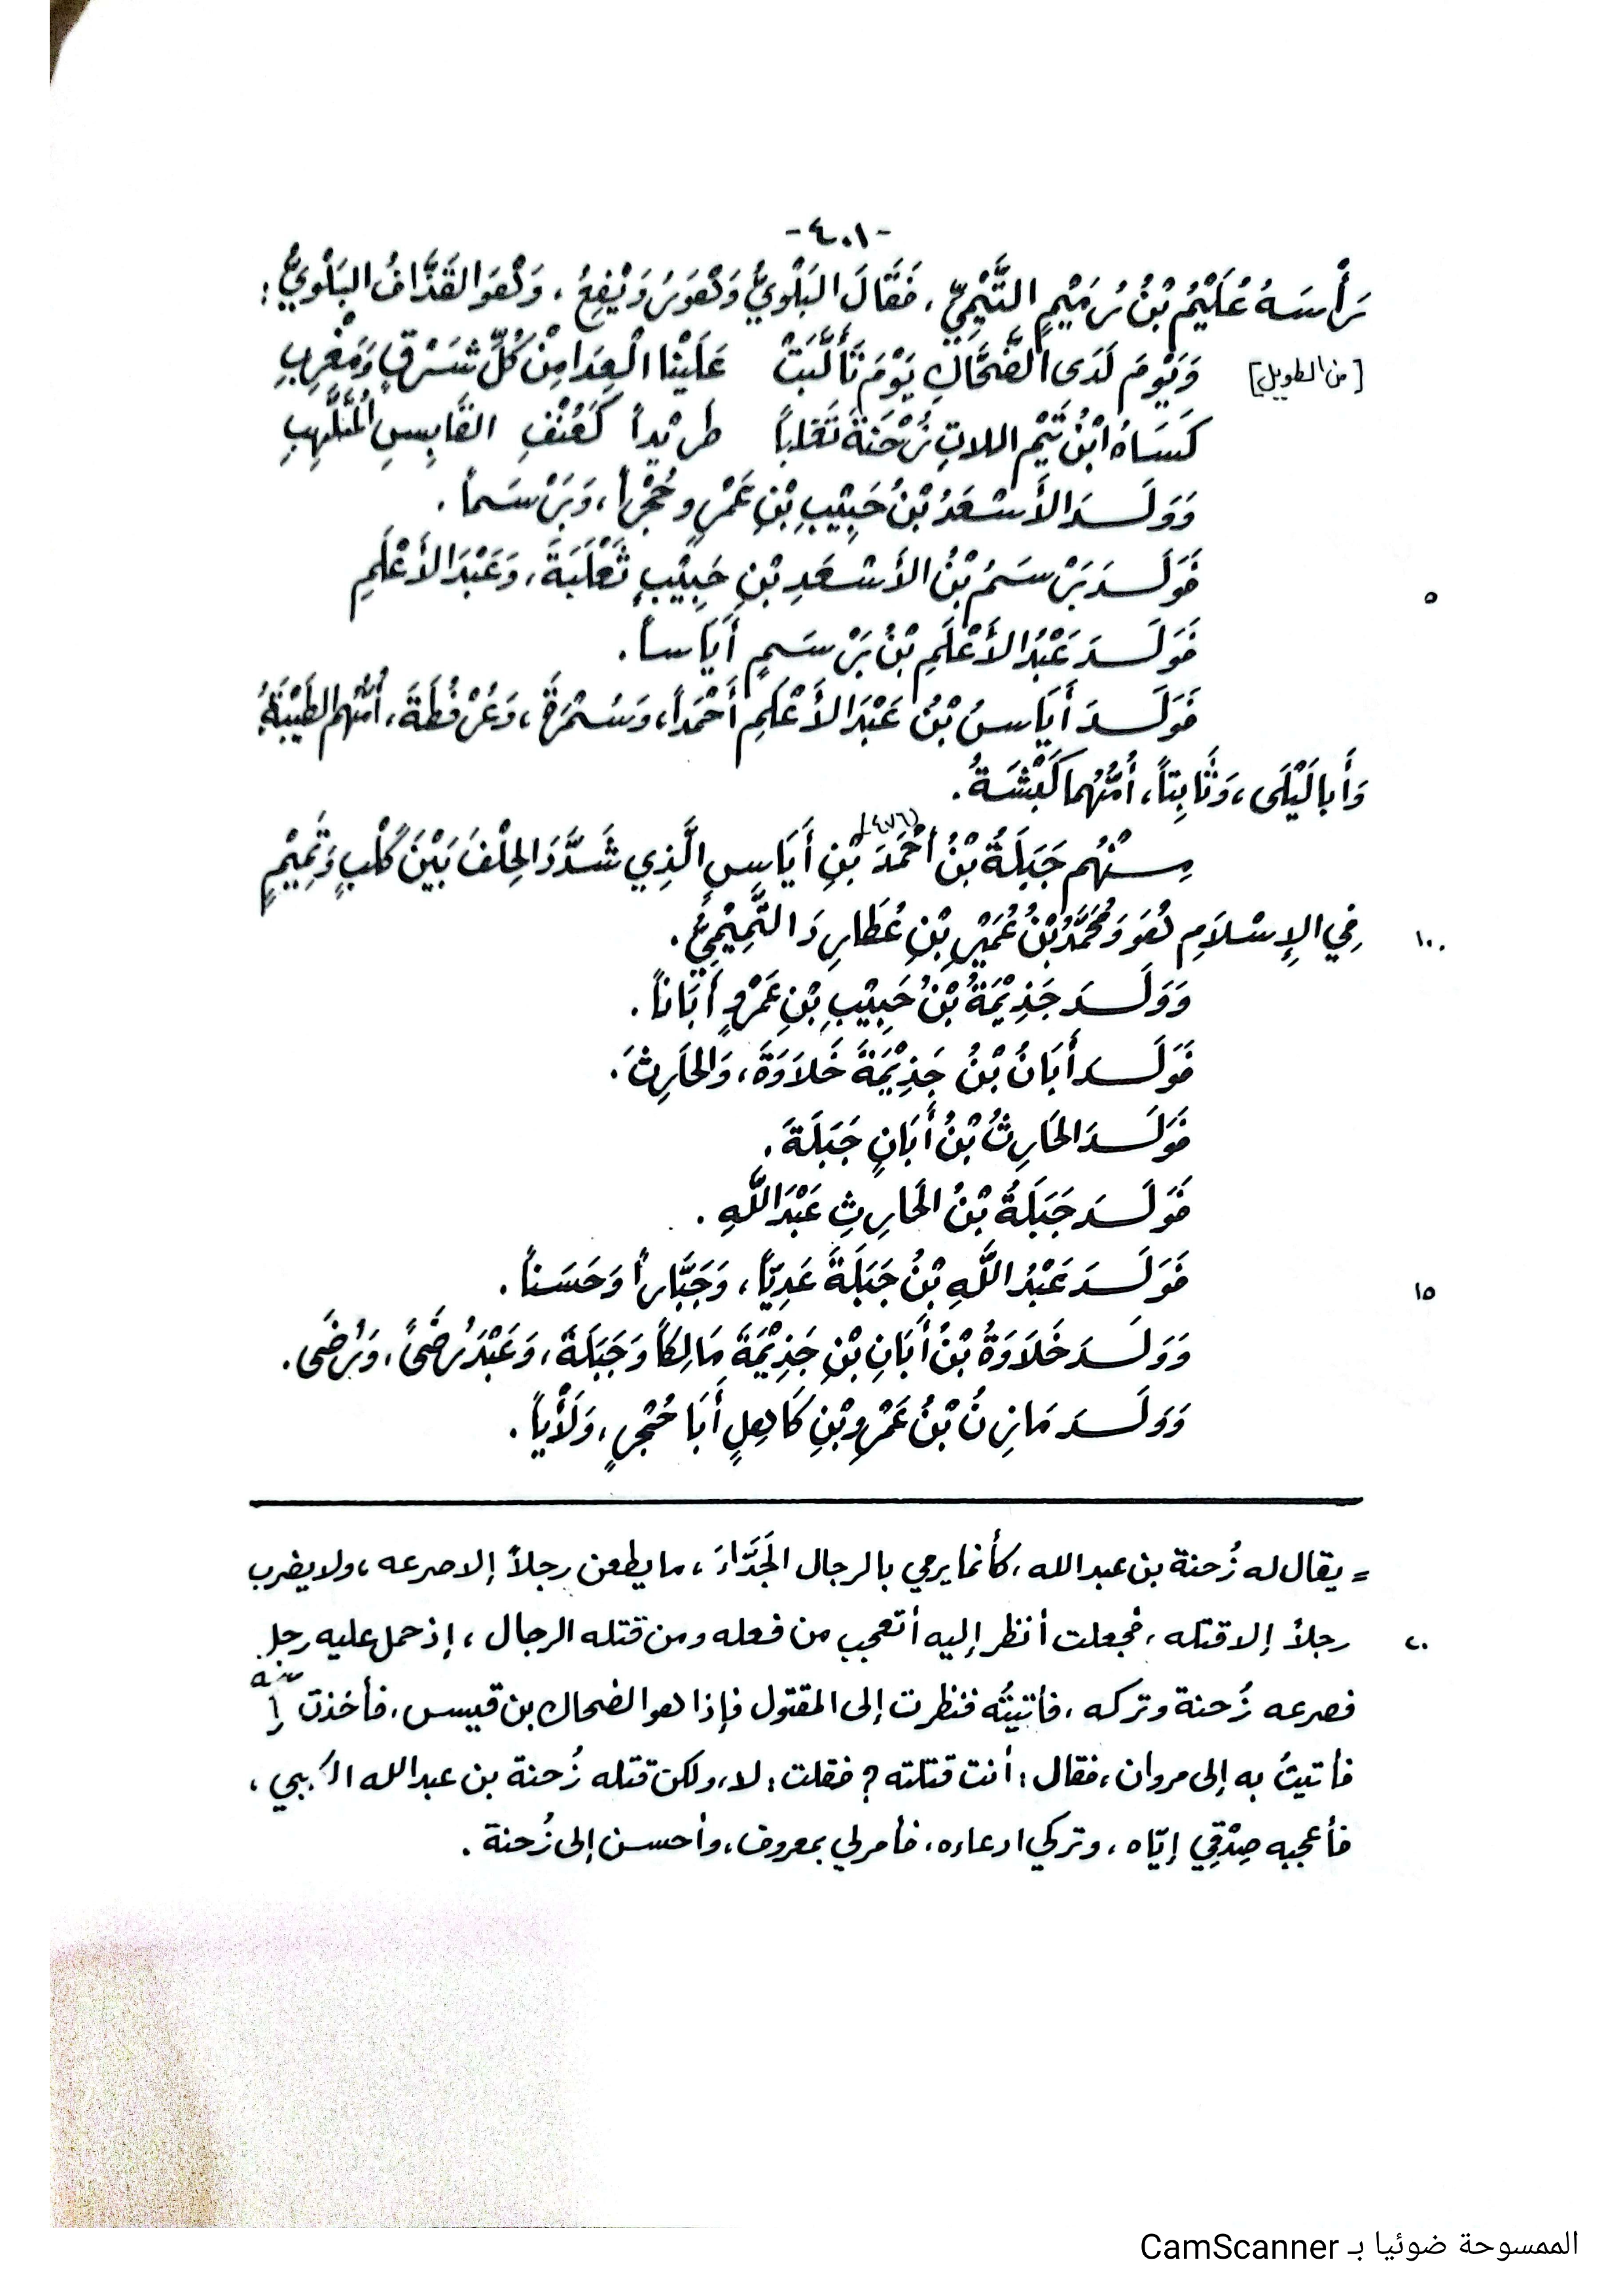 -٤٠١-
رَأْسَهُ عُلَيْمُ بْنُ رُمَيْمٍ التَّيْمِيِّ، فَقَالَ البَلَوِيُّ وَهُوَ رُوَيْفِعُ، وَهُوَ القَذَّافُ البَلَوِيُّ:
[من الطويل] وَيَوْمَ لَدَى الضَّحَّاكِ يَوْمَ تَأَلَّبَتْ عَلَيْنَا الْعِدَا مِنْ كُلِّ شَرْقٍ وَمَغْرِبِ
كَسَاهُ ابْنُ تَيْمِ اللاتِ زُحْنَةَ تَغْلِباً طَرِيْداً كَعُنْفِ القَابِسِ المُتَلَهِّبِ
وَوَلَدَ الأَسْعَدُ بْنُ حَبِيْبِ بْنِ عَمْرٍو حُجْراً، وَبَرْسَماً.
فَوَلَدَ بَرْسَمُ بْنُ الأَسْعَدِ بْنِ حَبِيْبٍ ثَعْلَبَةَ، وَعَبْدَ الأَعْلَمِ ٥
فَوَلَدَ عَبْدُ الأَعْلَمِ بْنُ بَرْسَمٍ أَيَاساً.
فَوَلَدَ أَيَاسُ بْنُ عَبْدِ الأَعْلَمِ أَحْمَداً، وَسُمْرَةَ، وَعُرْفُطَةَ، أُمُّهُم الطَّيِّبَةُ
وَأَبا لَيْلَى، وَثَابِتاً، أُمُّهُما كَبْشَةُ.
مِنْهُم جَبَلَةُ بْنُ أَحْمَدَ (٤٧٦) بْنِ أَيَاسٍ الَّذِي شَدَّدَ الحِلْفَ بَيْنَ كَلْبٍ وَتَمِيْمٍ
فِي الإِسْلاَمِ هُوَ وَمُحَمَّدُ بْنُ عُمَيْرِ بْنِ عُطَارِدَ التَّمِيْمِيُّ. ١٠
وَوَلَدَ جَذِيْمَةُ بْنُ حَبِيْبِ بْنِ عَمْرٍو أَبَاناً.
فَوَلَدَ أَبَانُ بْنُ جَذِيْمَةَ خَلاَوَةَ، وَالحَارِثَ.
فَوَلَدَ الحَارِثُ بْنُ أَبَانٍ جَبَلَةَ.
فَوَلَدَ جَبَلَةُ بْنُ الحَارِثِ عَبْدَ اللَّهِ.
فَوَلَدَ عَبْدُ اللَّهِ بْنُ جَبَلَةَ عَدِيّاً، وَجَبَّاراً وَحَسَناً. ١٥
وَوَلَدَ خَلاَوَةُ بْنُ أَبَانِ بْنِ جَذِيْمَةَ مَالِكاً وَجَبَلَةَ، وَعَبْدَ رُضَىً، وَرُضَى.
وَوَلَدَ مَازِنُ بْنُ عَمْرِو بْنِ كَاهِلٍ أَبَا حُجْرٍ، وَلَأْياً.
= يقال له زُحنة بن عبد الله، كأنما يرمي بالرجال الجَدَّاءَ، ما يطعن رجلاً إلا صرعه، ولا يضرب
رجلاً إلا قتله، فجعلت أنظر إليه أتعجب من فعله ومن قتله الرجال، إذ حمل عليه رجل ٢٠
فصرعه زُحنة وتركه، فأتيتُه فنظرت إلى المقتول فإذا هو الضحاك بن قيس، فأخذت رأسه
فأتيتُ به إلى مروان، فقال: أنت قتلته؟ فقلت: لا، ولكن قتله زُحنة بن عبد الله الكلبي،
فأعجبه صِدْقِي إيّاه، وتركي ادعاءه، فأمر لي بمعروف، وأحسن إلى زُحنة.
الممسوحة ضوئيا بـ CamScanner